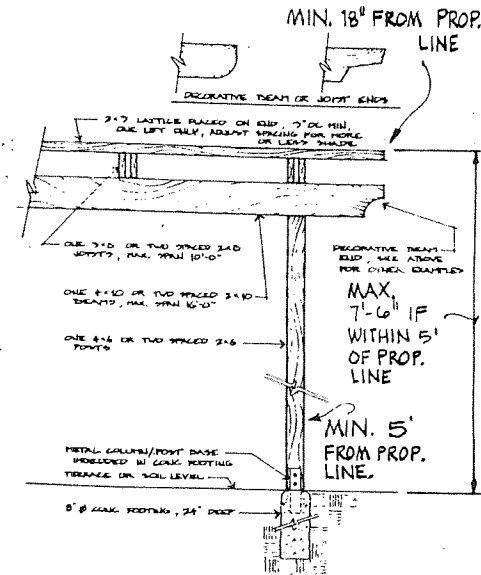 MIN. 18" FROM PROP.
LINE
DECORATIVE BEAM OR JOIST ENDS
LATTICE PLACED ON END, 3" OC MIN,
ONE LIFT ONLY, ADJUST SPACING FOR MORE
OR LESS SHADE
ONE 3×8 OR TWO SPACED 2×8
JOISTS, MAX. SPAN 10'-0"
ONE 4×10 OR TWO SPACED 2×10
BEAMS, MAX. SPAN 16'-0"
ONE 4×6 OR TWO SPACED 2×6
POSTS
DECORATIVE BEAM
END, SEE ABOVE
FOR OTHER EXAMPLES
MAX.
7'-6" IF
WITHIN 5'
OF PROP.
LINE
MIN. 5'
FROM PROP.
LINE.
METAL COLUMN/POST BASE
IMBEDDED IN CONC FOOTING
TERRACE OR SOIL LEVEL
8" Ø CONC. FOOTING, 24" DEEP